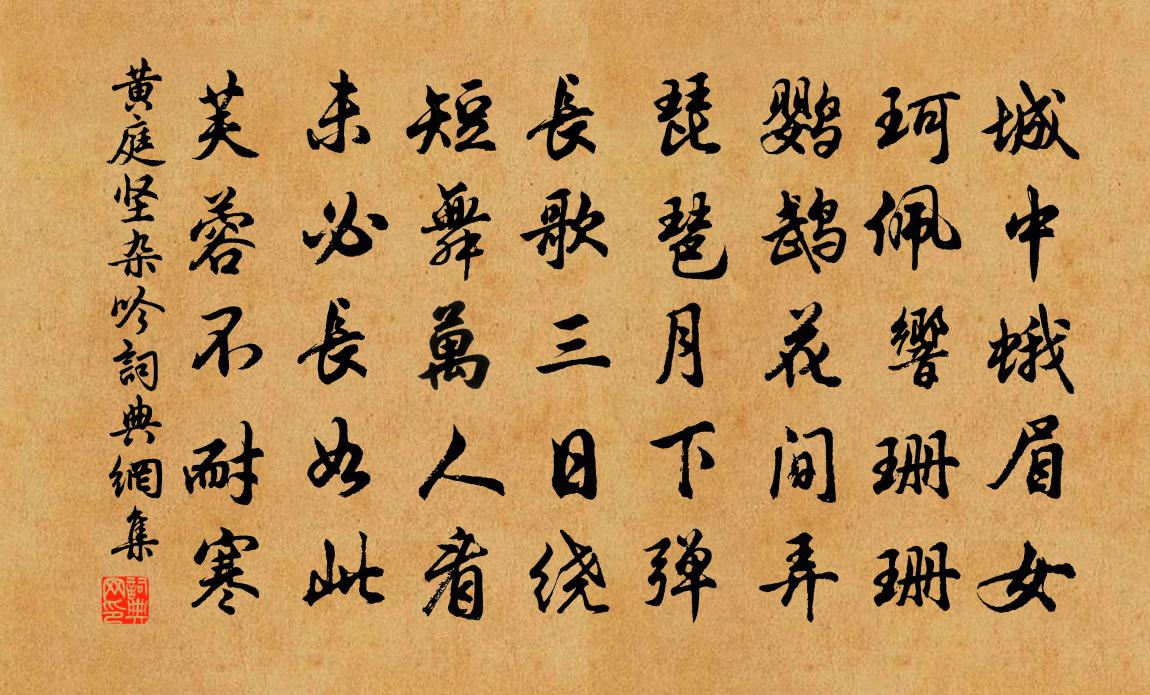 城中蛾眉女
珂佩響珊珊
鹦鹉花间弄
琵琶月下弹
長歌三日绕
短舞萬人看
未必長如此
芙蓉不耐寒
黄庭坚杂吟詞典網集
詞典网印